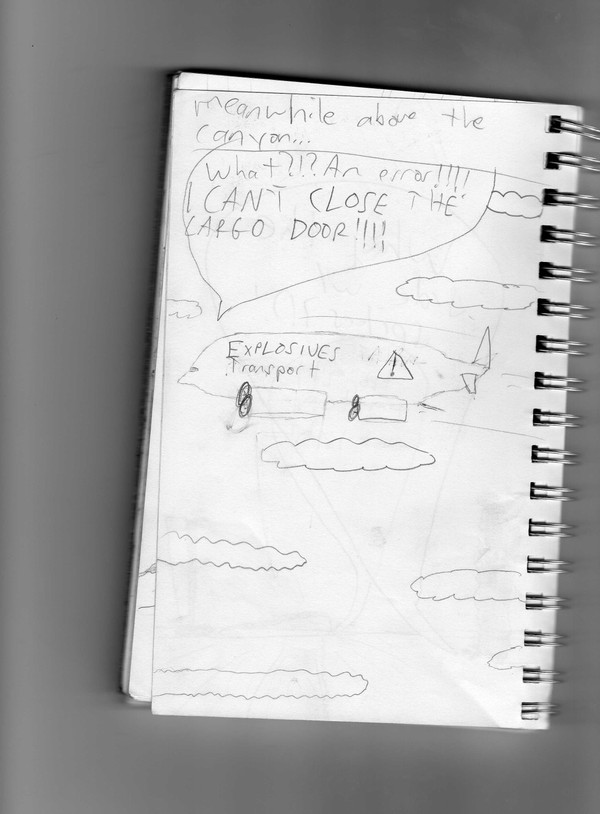 meanwhile above the
canyon...
What?!? An error!!!!
I CAN'T CLOSE THE
CARGO DOOR!!!!
EXPLOSIVES
Transport
!